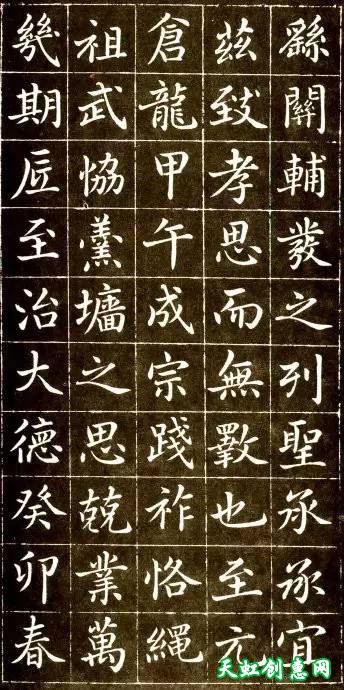 繇關輔發之列聖承承宜
茲致孝思而無斁也至元
倉龍甲午成宗踐祚恪繩
祖武恊羹墻之思兢業萬
幾期底至治大德癸卯春
天虹创意网